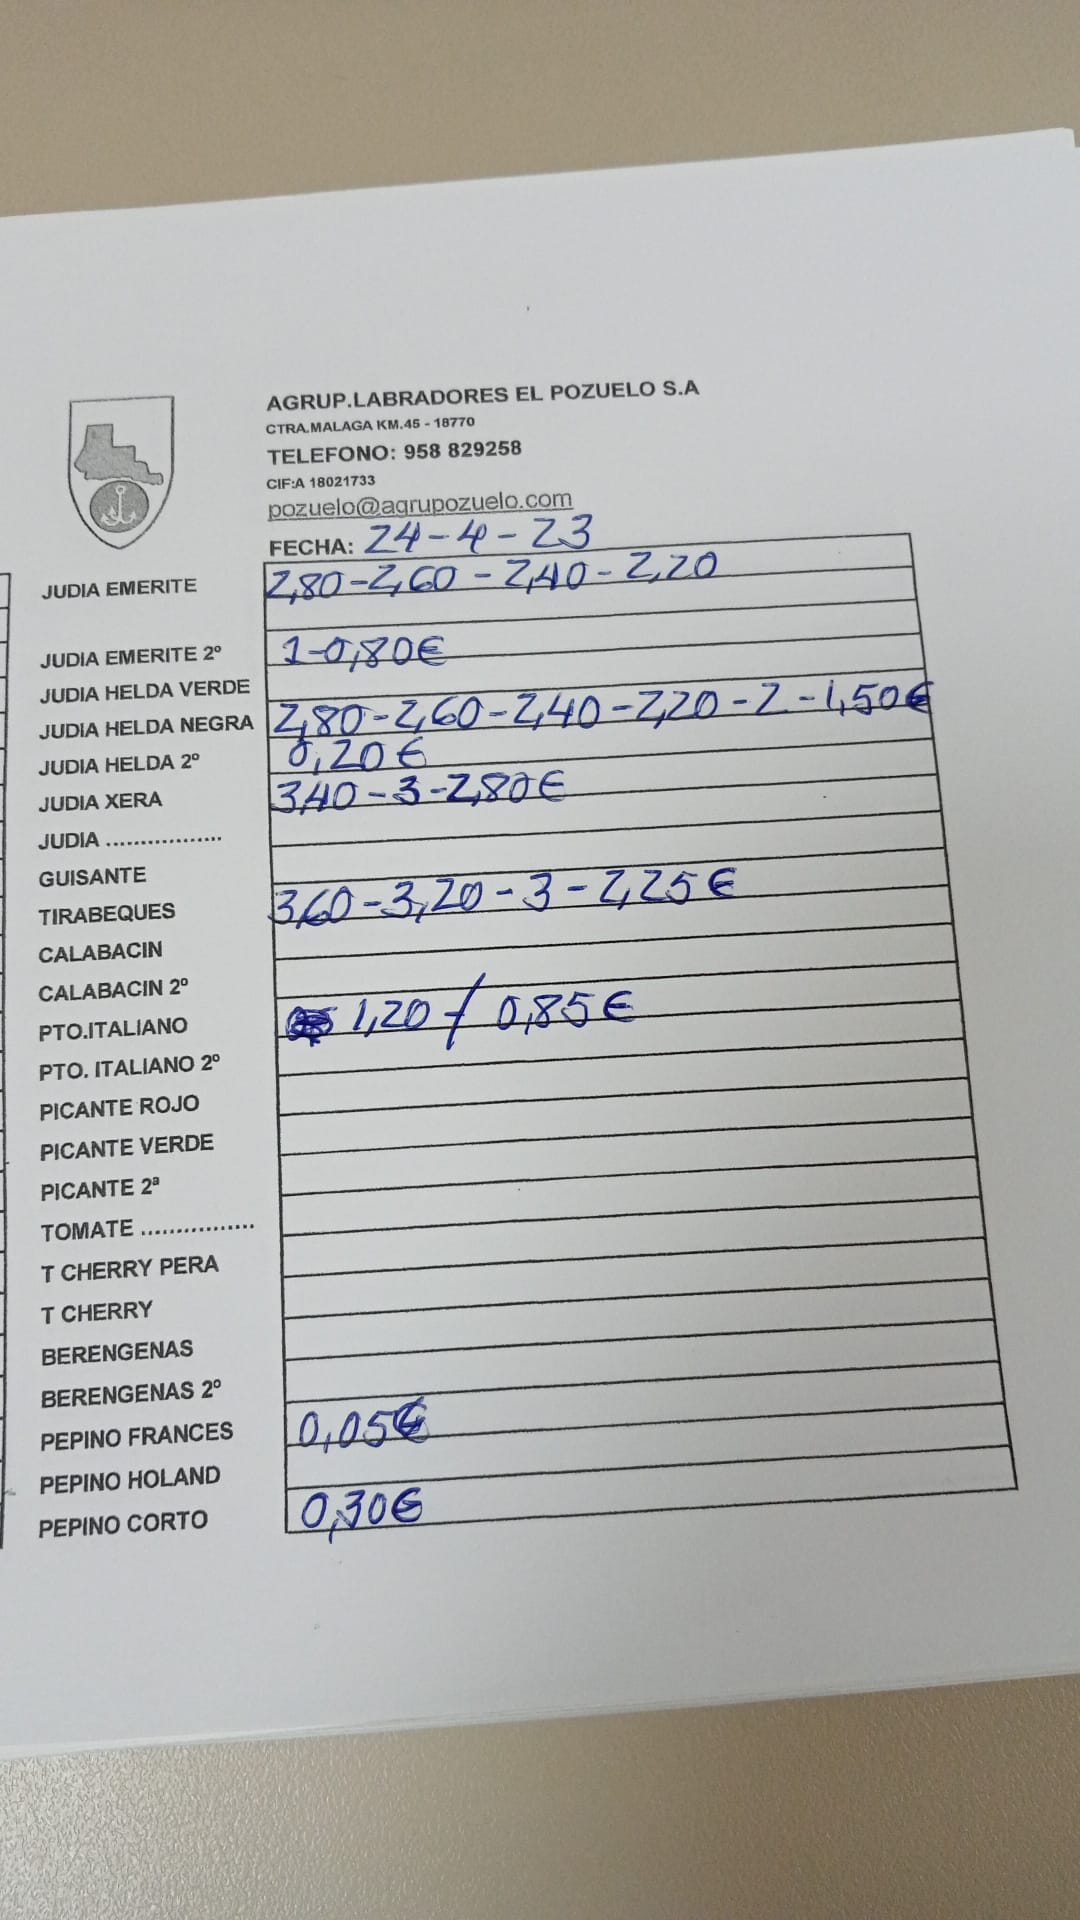 AGRUP.LABRADORES EL POZUELO S.A
CTRA.MALAGA KM.45 - 18770
TELEFONO: 958 829258
CIF:A 18021733
pozuelo@agrupozuelo.com
FECHA: 24-4-23
JUDIA EMERITE 2,80-2,60-2,40-2,20
JUDIA EMERITE 2º 1-0,80€
JUDIA HELDA VERDE
JUDIA HELDA NEGRA 2,80-2,60-2,40-2,20-2-1,50€
JUDIA HELDA 2º 0,20€
JUDIA XERA 3,40-3-2,80€
JUDIA .................
GUISANTE
TIRABEQUES 3,60-3,20-3-2,25€
CALABACIN
CALABACIN 2º
PTO.ITALIANO 1,20 / 0,85€
PTO. ITALIANO 2º
PICANTE ROJO
PICANTE VERDE
PICANTE 2ª
TOMATE ................
T CHERRY PERA
T CHERRY
BERENGENAS
BERENGENAS 2º
PEPINO FRANCES 0,05€
PEPINO HOLAND
PEPINO CORTO 0,30€